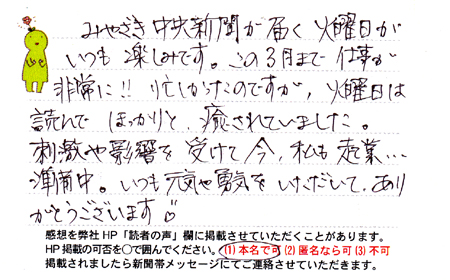 みやざき中央新聞が届く火曜日が
いつも楽しみです。この3月まで仕事が
非常に!!忙しかったのですが、火曜日は
読んでほっかりと、癒されていました。
刺激や影響を受けて今、私も起業…
準備中。いつも元気や勇気をいただいて、あり
がとうございます
感想を弊社HP「読者の声」欄に掲載させていただくことがあります。
HP掲載の可否を○で囲んでください。(1)本名で可 (2)匿名なら可 (3)不可
掲載されましたら新聞帯メッセージにてご連絡させていただきます。